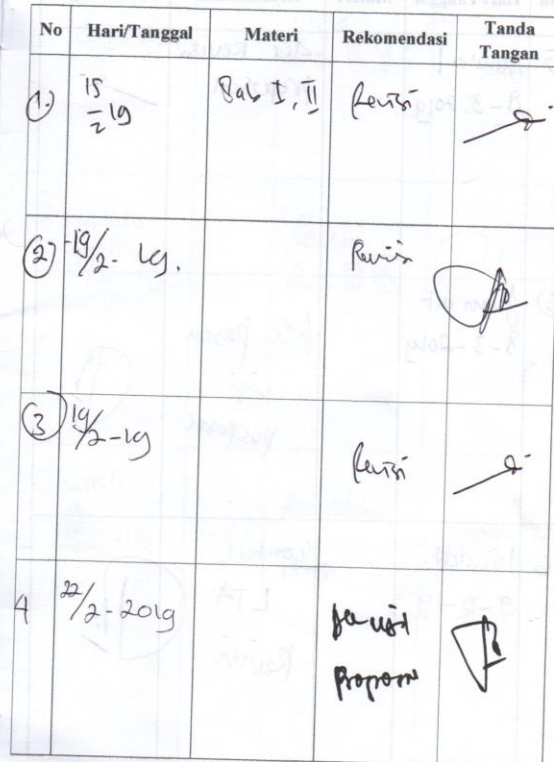 No Hari/Tanggal Materi Rekomendasi Tanda Tangan
1. 15/2 19 Bab I, II Revisi
2 19/2 - 19. Revisi
3 19/2 - 19 Revisi
4 22/2 - 2019